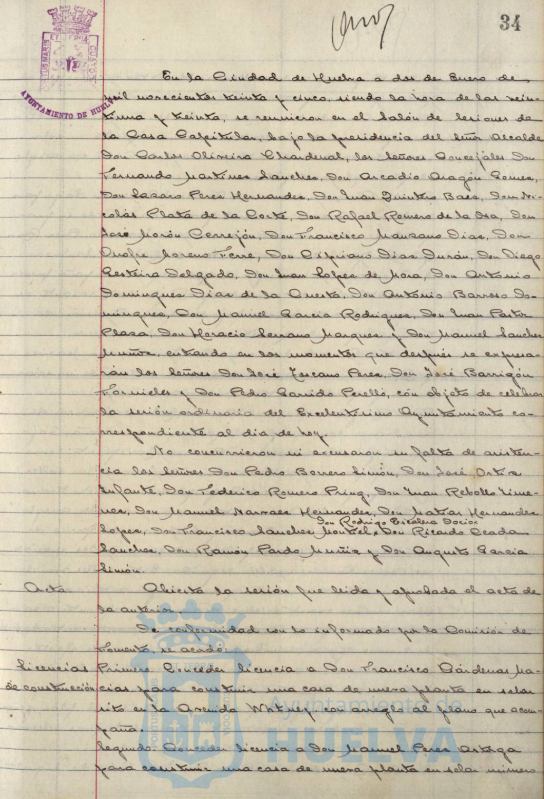 34
AYUNTAMIENTO DE HUELVA
En la Ciudad de Huelva a dos de Enero de
mil novecientos treinta y cinco, siendo la hora de las vein-
tiuna y treinta, se reunieron en el Salón de Sesiones de
la Casa Capitular, bajo la presidencia del Señor Alcalde
Don Carlos Oliveira Chardenal, los Señores Concejales Don
Fernando Martínez Sánchez, Don Arcadio Aragón Gómez,
Don Lázaro Pérez Hernández, Don Juan Quintero Báez, Don Ni-
colás Plata de la Corte, Don Rafael Romero de la Osa, Don
José Morón Cerrejón, Don Francisco Manzano Díaz, Don
Onofre Moreno Ferre, Don Cipriano Díaz Durán, Don Diego
Gesteira Delgado, Don Juan López de Mora, Don Antonio
Domínguez Díaz de la Cuesta, Don Antonio Barroso Do-
mínguez, Don Manuel García Rodríguez, Don Juan Pastor
Plaza, Don Horacio Serrano Marquez y Don Manuel Sánchez
Muñoz, entrando en los momentos que después se expresa-
rán los Señores Don José Toscano Pérez, Don José Barrigón
Fornieles y Don Pedro Garrido Perelló, con objeto de celebrar
la sesión ordinaria del Excelentísimo Ayuntamiento co-
rrespondiente al día de hoy.
No concurrieron ni excusaron su falta de asisten-
cia los Señores Don Pedro Borrero Limón, Don José Ortiz
Infante, Don Federico Romero Don Juan Rebollo Jime-
nez, Don Manuel Narváez Hernández, Don Matías Hernández
Don Rodrigo
López, Don Francisco Sánchez Don Ricardo
Sánchez, Don Ramón Pardo Muñiz y Don Augusto García
Limón.
Acta Abierta la sesión fue leída y aprobada el acta de
la anterior.
De conformidad con lo informado por la Comisión de
Fomento, se acordó:
Licencias Primero: Conceder licencia a Don Francisco Cárdenas Ma-
de construcción cías para construir una casa de nueva planta en solar
sito en la Avenida con arreglo al plano que acom-
paña.
Segundo: Conceder licencia a Don Manuel Pérez Ortega
para construir una casa de nueva planta en solar número
Ayuntamiento de
HUELVA